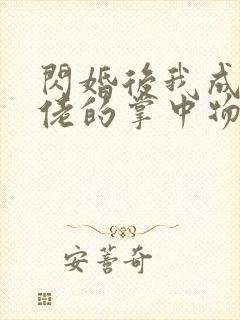 閃婚後我成
佬的掌中物
安薔奇